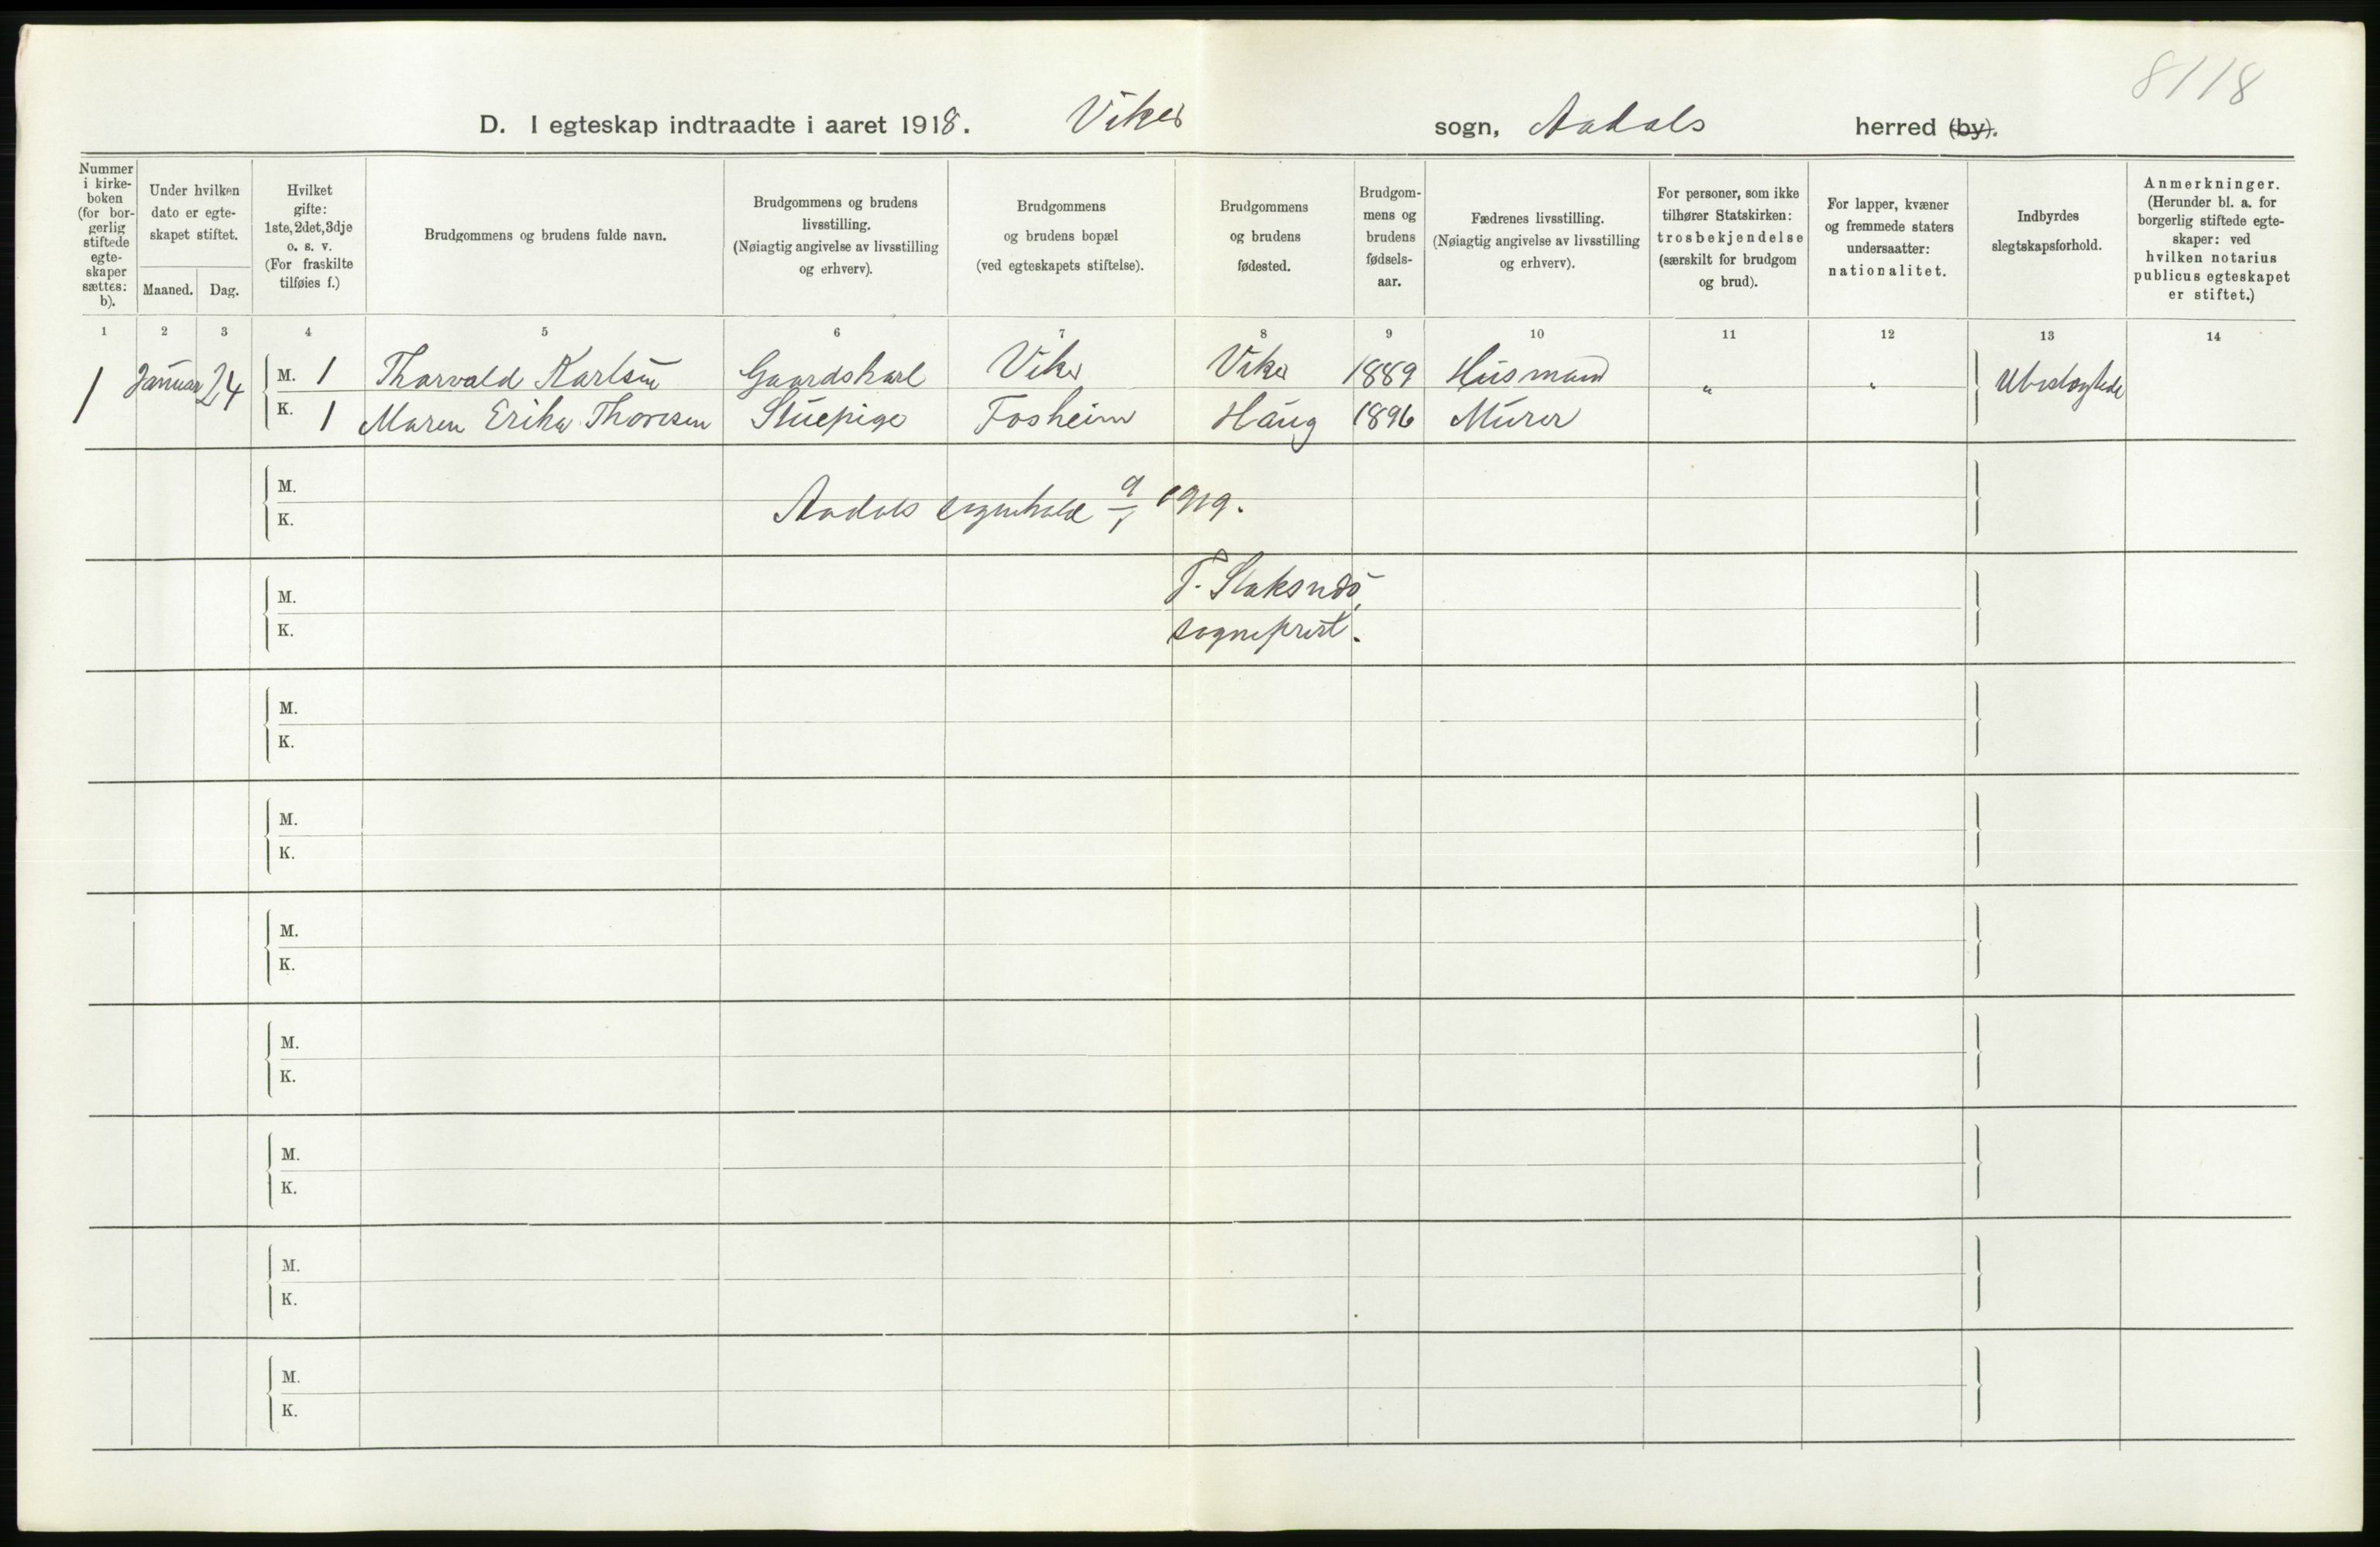 8118
D. I egteskap indtraadte i aaret 1918. Viker sogn, Aadals herred (by).
Nummer i kirkeboken (for borgerlig stiftede egteskaper sættes: b).
Under hvilken dato er egteskapet stiftet.
Maaned. Dag.
Hvilket gifte: 1ste, 2det, 3dje o. s. v. (For fraskilte tilføies f.)
Brudgommens og brudens fulde navn.
Brudgommens og brudens livsstilling. (Nøiagtig angivelse av livsstilling og erhverv).
Brudgommens og brudens bopæl (ved egteskapets stiftelse).
Brudgommens og brudens fødested.
Brudgommens og brudens fødselsaar.
Fædrenes livsstilling. (Nøiagtig angivelse av livsstilling og erhverv).
For personer, som ikke tilhører Statskirken: trosbekjendelse (særskilt for brudgom og brud).
For lapper, kvæner og fremmede staters undersaatter: nationalitet.
Indbyrdes slegtskapsforhold.
Anmerkninger. (Herunder bl. a. for borgerlig stiftede egteskaper: ved hvilken notarius publicus egteskapet er stiftet.)
1 2 3 4 5 6 7 8 9 10 11 12 13 14
1 Januar 24 M. 1 Thorvald Karlsen Gaardskarl Viker Viker 1889 Husmand " " Ubeslægtede
K. 1 Maren Erika Thoresen Stuepige Fosheim Haug 1896 Murer
M.
K.
Aadals sognekald 9/1 1919.
M.
K.
T. 
sogneprest.
M.
K.
M.
K.
M.
K.
M.
K.
M.
K.
M.
K.
M.
K.